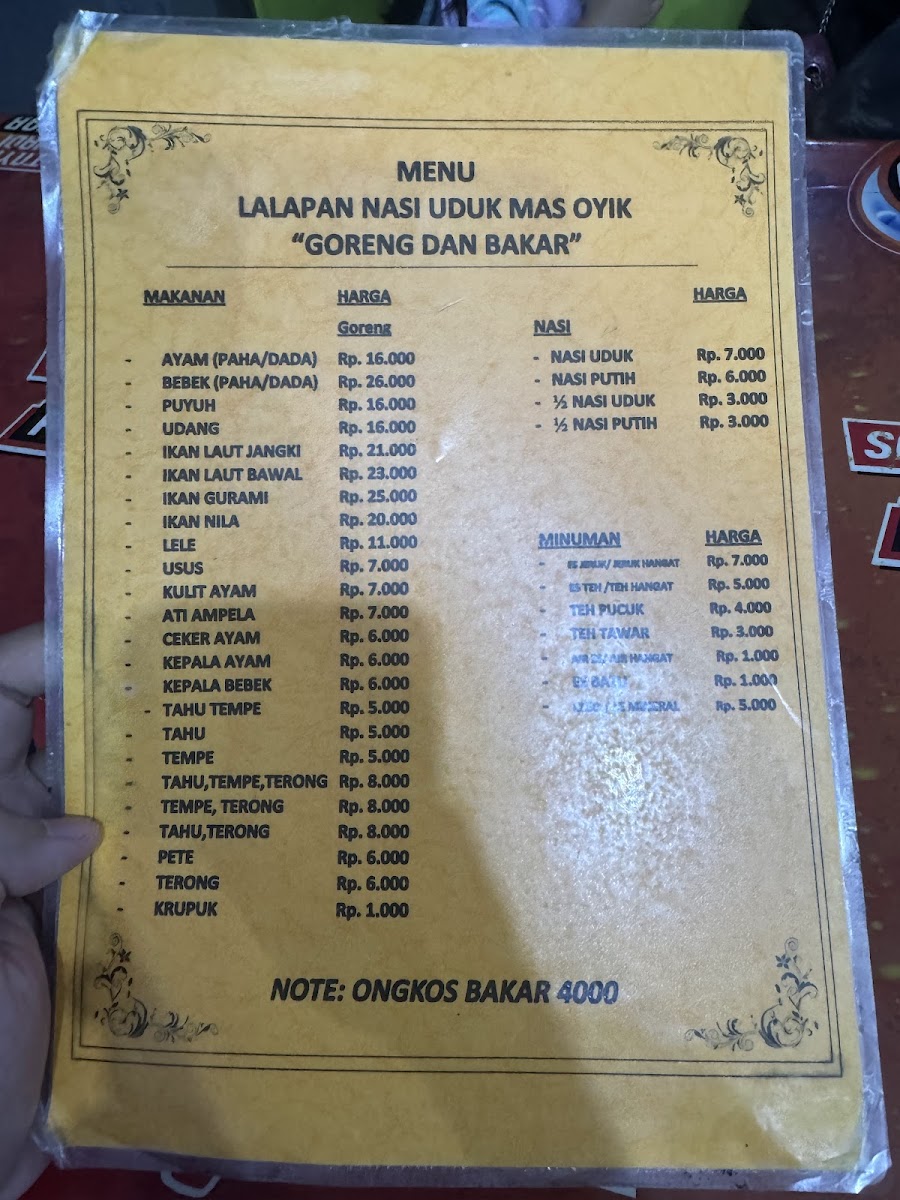 MENU
LALAPAN NASI UDUK MAS OYIK
“GORENG DAN BAKAR”
MAKANAN HARGA
Goreng
- AYAM (PAHA/DADA) Rp. 16.000
- BEBEK (PAHA/DADA) Rp. 26.000
- PUYUH Rp. 16.000
- UDANG Rp. 16.000
- IKAN LAUT JANGKI Rp. 21.000
- IKAN LAUT BAWAL Rp. 23.000
- IKAN GURAMI Rp. 25.000
- IKAN NILA Rp. 20.000
- LELE Rp. 11.000
- USUS Rp. 7.000
- KULIT AYAM Rp. 7.000
- ATI AMPELA Rp. 7.000
- CEKER AYAM Rp. 6.000
- KEPALA AYAM Rp. 6.000
- KEPALA BEBEK Rp. 6.000
- TAHU TEMPE Rp. 5.000
- TAHU Rp. 5.000
- TEMPE Rp. 5.000
- TAHU,TEMPE,TERONG Rp. 8.000
- TEMPE, TERONG Rp. 8.000
- TAHU,TERONG Rp. 8.000
- PETE Rp. 6.000
- TERONG Rp. 6.000
- KRUPUK Rp. 1.000
HARGA
NASI
- NASI UDUK Rp. 7.000
- NASI PUTIH Rp. 6.000
- ½ NASI UDUK Rp. 3.000
- ½ NASI PUTIH Rp. 3.000
MINUMAN HARGA
- ES JERUK/ JERUK HANGAT Rp. 7.000
- ES TEH /TEH HANGAT Rp. 5.000
- TEH PUCUK Rp. 4.000
- TEH TAWAR Rp. 3.000
- AIR ES/ AIR HANGAT Rp. 1.000
- ES BATU Rp. 1.000
- MINERAL Rp. 5.000
NOTE: ONGKOS BAKAR 4000